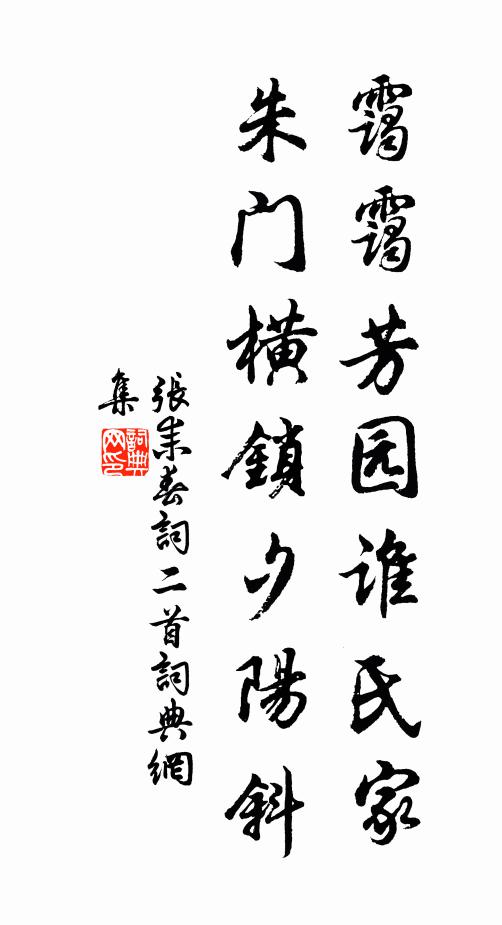 靄靄芳园谁氏家
朱门橫鎖夕陽斜
張耒春詞二首詞典網
集
詞典
网印